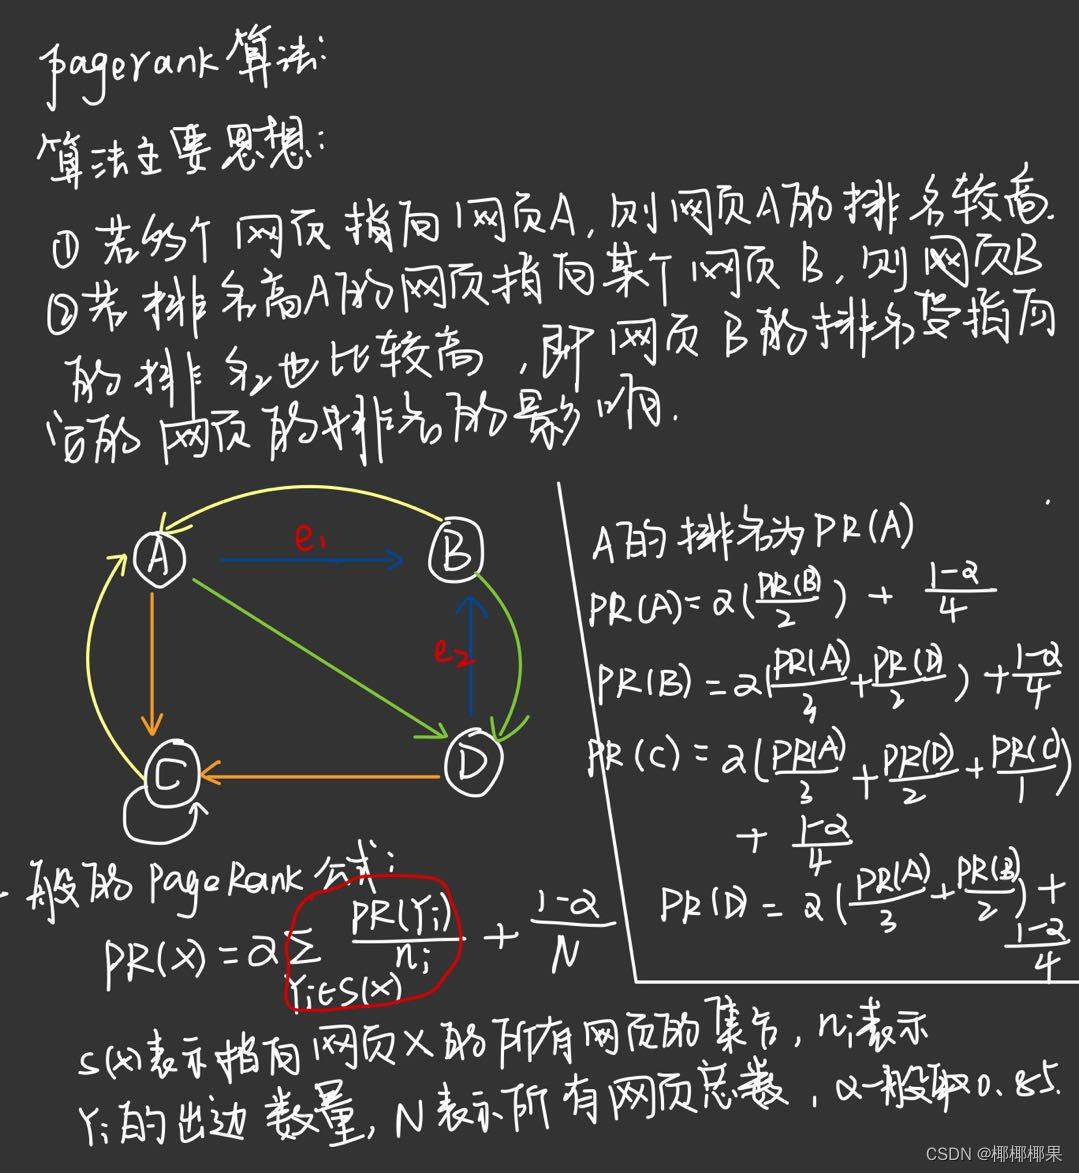 pagerank算法:
算法主要思想:
① 若多个网页指向网页A,则网页A的排名较高.
②若排名高A的网页指向某个网页B,则网页B
的排名也比较高,即网页B的排名受指向
它的网页的排名的影响.
A e₁ B
e₂
C D
A的排名为PR(A)
PR(A)=α(PR(B)/2) + (1-α)/4
PR(B)=α(PR(A)/3+PR(D)/2)+(1-α)/4
PR(C)=α(PR(A)/3+PR(D)/2+PR(C)/1)
+ (1-α)/4
PR(D)=α(PR(A)/3+PR(B)/2)+
(1-α)/4
一般的PageRank公式:
PR(X)=α∑ PR(Yi)/ni + (1-α)/N
Yi∈S(X)
S(X)表示指向网页X的所有网页的集合,ni表示
Yi的出边数量,N表示所有网页总数,α一般取0.85.
CSDN @椰椰椰果